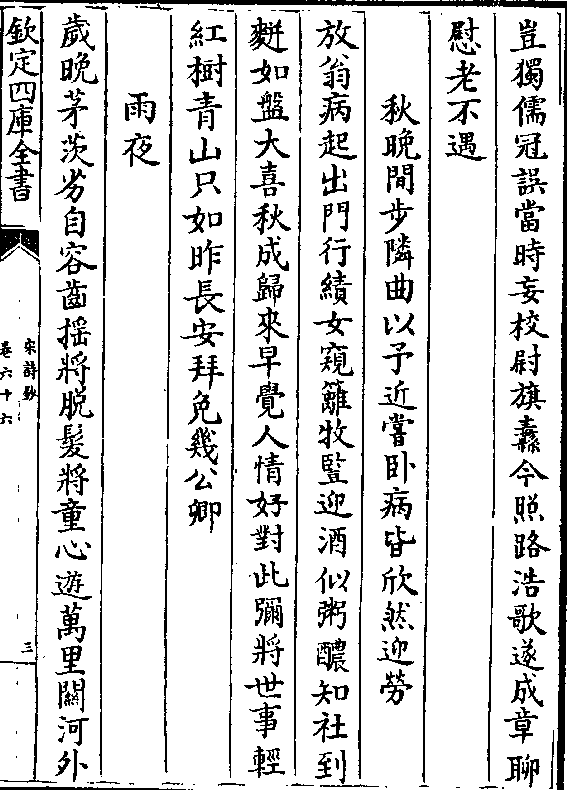 豈獨儒冠誤當時妄校尉旗纛今照路浩歌遂成章聊
慰老不遇
秋晚間步隣曲以予近嘗卧病皆欣然迎勞
放翁病起出門行績女窺籬牧豎迎酒似粥醲知社到
麪如盤大喜秋成歸來早覺人情好對此彌將世事輕
紅樹青山只如昨長安拜免幾公卿
雨夜
歲晚茅茨劣自容齒揺將脱髮將童心遊萬里關河外
欽定四庫全書
宋詩鈔
卷六十六
三